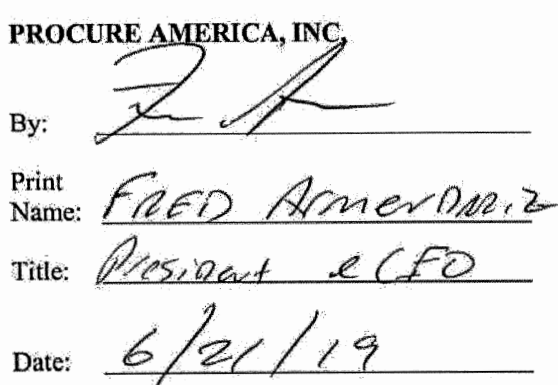 PROCURE AMERICA, INC.
By:
Print
Name: FRED ArmerDARiz
Title: PresiDent e CFO
Date: 6/21/19